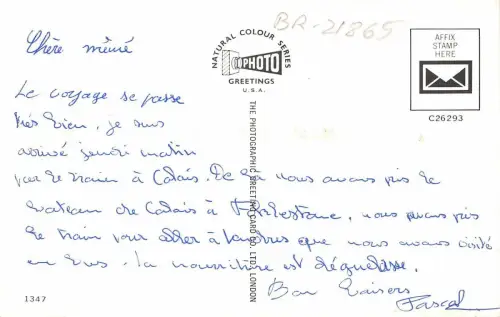 BR-21865
Chère mémé
NATURAL COLOUR SERIES
PHOTO
GREETINGS
U.S.A.
AFFIX
STAMP
HERE
C26293
THE PHOTOGRAPHIC GREETING CARD CO. LTD. LONDON
Le voyage se passe
très bien, je suis
arrivé jeudi matin
par le train à Calais. De là nous avons pris le
bateau de Calais à Folkestone, nous avons pris
le train pour aller à Londres que nous avons visité
en bus. la nourriture est dégueulasse.
Bon baisers
Pascal
1347